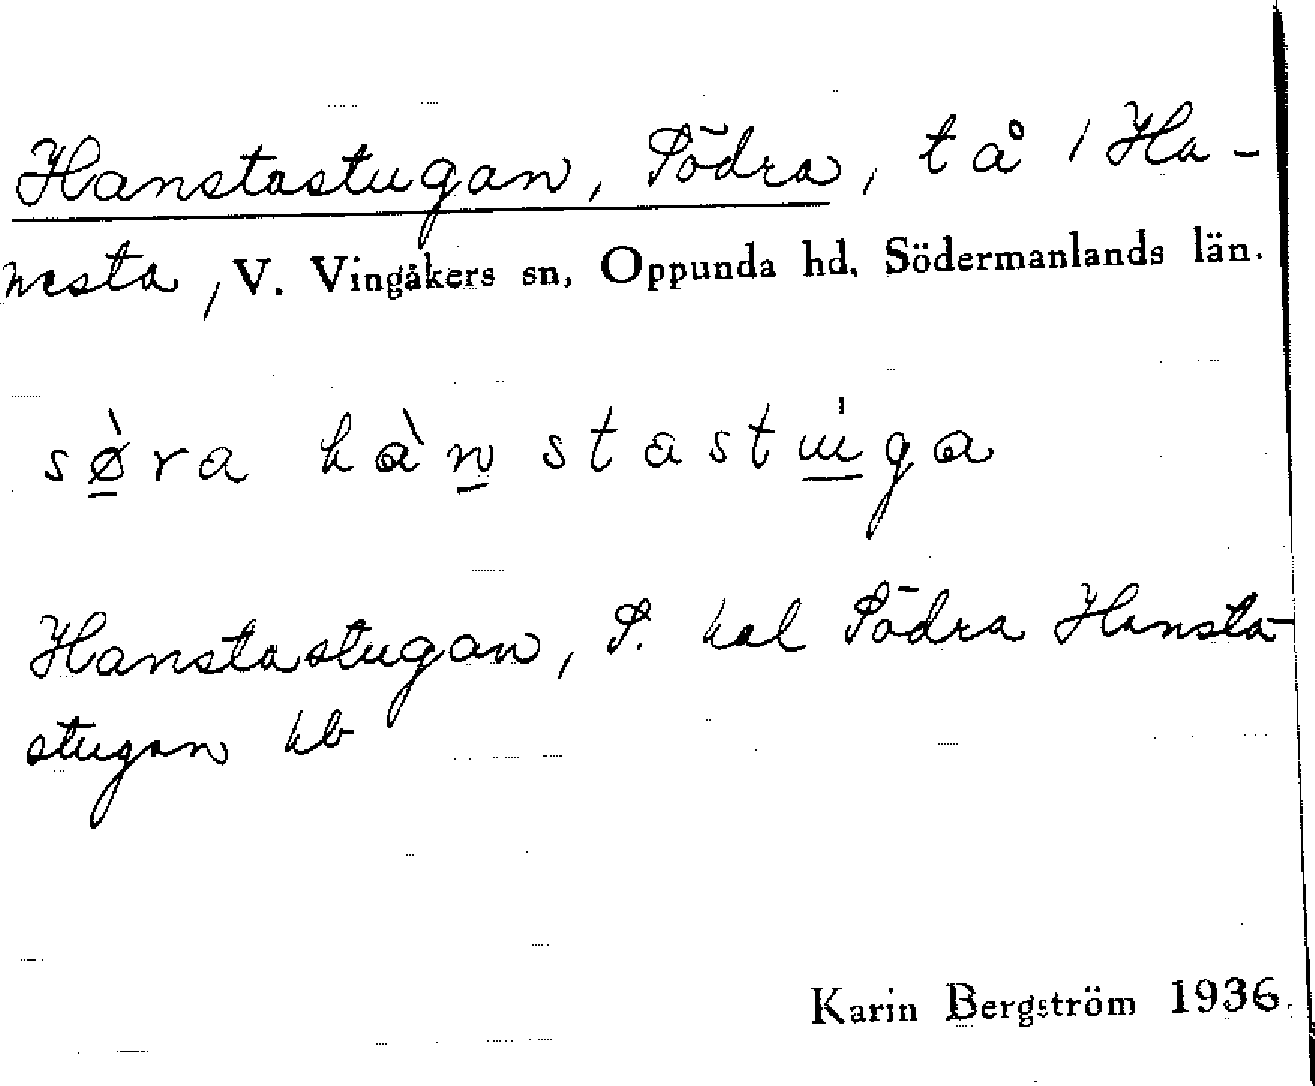 Hanstastugan, Södra, t å 1 Ha-
nesta, V. Vingåkers sn, Oppunda hd, Södermanlands län.
sø̀ra hàn stastu̇ga
Hanstastugan, S. kal Södra Hansta-
stugan kb
Karin Bergström 1936.